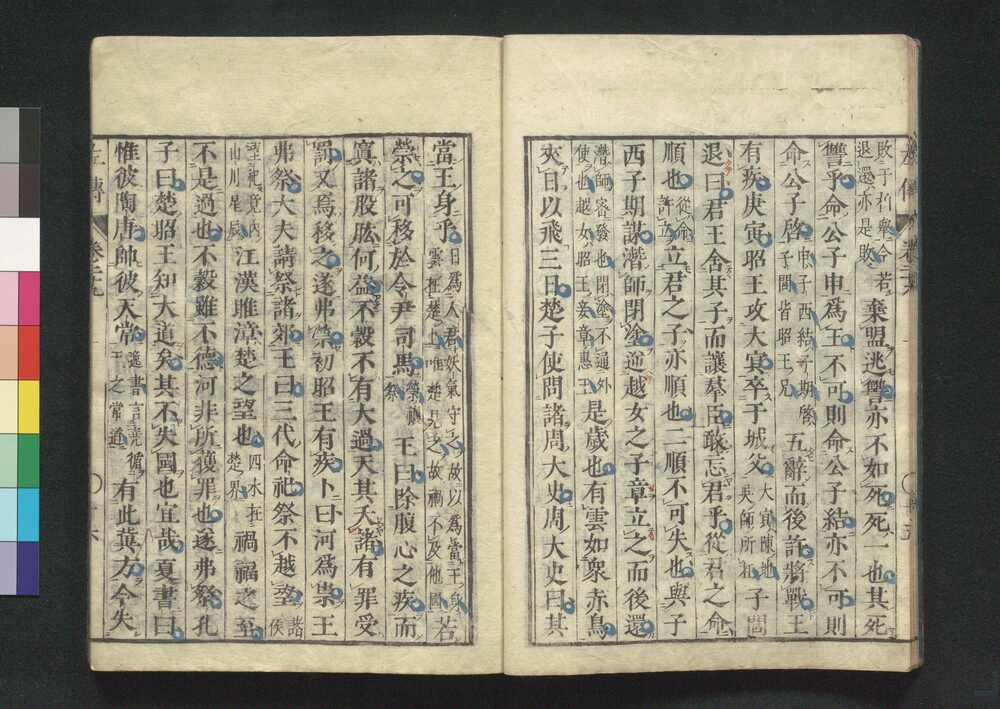 敗于柏舉今若
退還亦是敗棄盟逃讐亦不如死死一也其死
讐乎命公子申爲王不可則命公子結亦不可則
命公子啓申子西結子期啓
子閭皆昭王兄五辭而後許將戰王
有疾庚寅昭王攻大冥卒于城父大冥陳地
吳師所在子閭
退曰君王舍其子而讓羣臣敢忘君乎從君之命
順也從命
許立立君之子亦順也二順不可失也與子
西子期謀潛師閉塗逆越女之子章立之而後還
潛師密發也閉塗不通外
使也越女昭王妾章惠王是歲也有雲如衆赤鳥
夾日以飛三日楚子使問諸周大史周大史曰其
當王身乎日爲人君妖氣守之故以爲當王身
雲在楚上唯楚見之故禍不及他國若
禜之可移於令尹司馬禜禳
祭王曰除腹心之疾而
寘諸股肱何益不穀不有大過天其夭諸有罪受
罰又焉移之遂弗禜初昭王有疾卜曰河爲祟王
弗祭大夫請祭諸郊王曰三代命祀祭不越望諸侯
望祀竟內
山川星辰江漢雎漳楚之望也四水在
楚界禍福之至
不是過也不穀雖不德河非所獲罪也遂弗祭孔
子曰楚昭王知大道矣其不失國也宜哉夏書曰
惟彼陶唐帥彼天常逸書言堯循
王之常道有此冀方今失
左傳 卷二十九